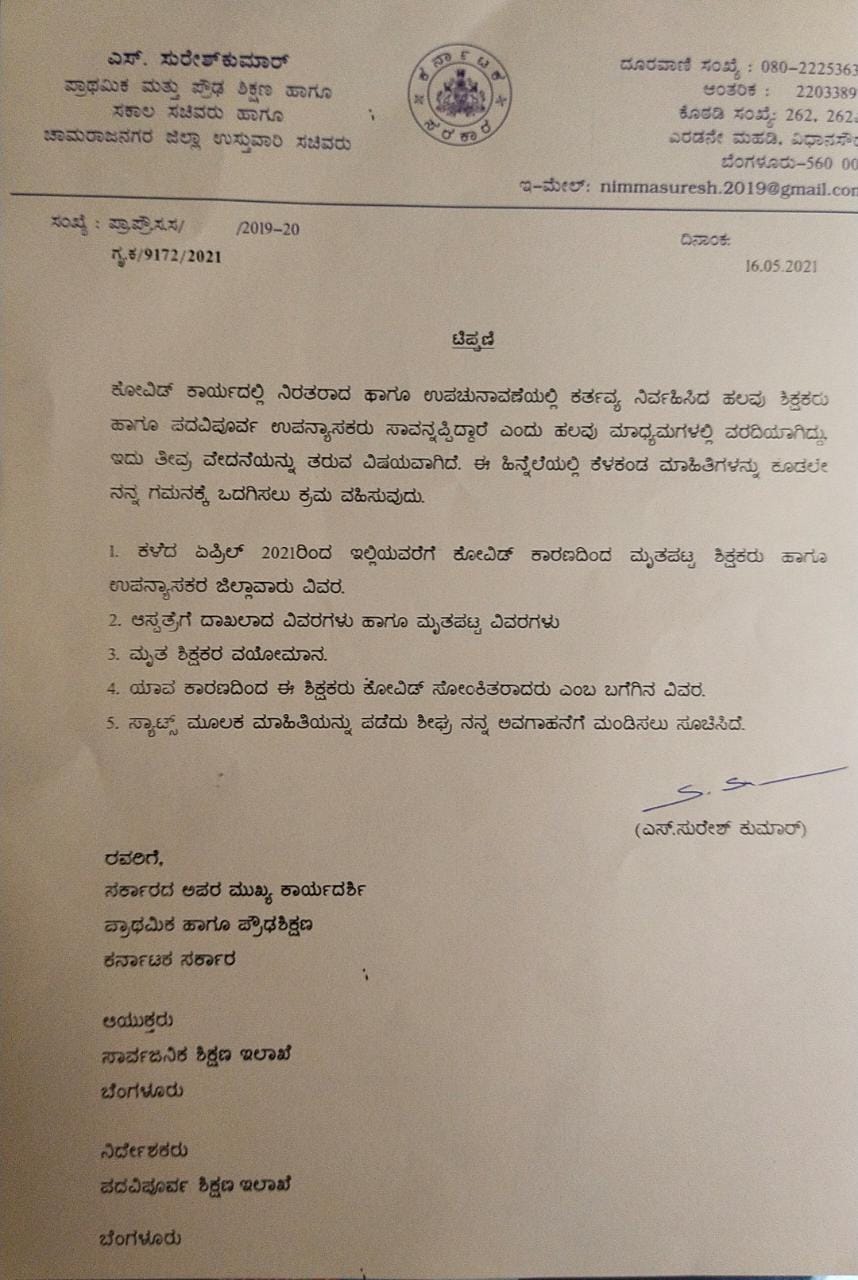 ಎಸ್. ಸುರೇಶ್‌ಕುಮಾರ್
ಪ್ರಾಥಮಿಕ ಮತ್ತು ಪ್ರೌಢ ಶಿಕ್ಷಣ ಹಾಗೂ
ಸಕಾಲ ಸಚಿವರು ಹಾಗೂ
ಚಾಮರಾಜನಗರ ಜಿಲ್ಲಾ ಉಸ್ತುವಾರಿ ಸಚಿವರು
ಕರ್ನಾಟಕ
ಸರಕಾರ
ದೂರವಾಣಿ ಸಂಖ್ಯೆ : 080-2225363
ಆಂತರಿಕ : 2203389
ಕೊಠಡಿ ಸಂಖ್ಯೆ: 262, 262
ಎರಡನೇ ಮಹಡಿ, ವಿಧಾನಸೌ
ಬೆಂಗಳೂರು-560 00
ಇ-ಮೇಲ್: nimmasuresh.2019@gmail.com
ಸಂಖ್ಯೆ : ಪ್ರಾ.ಪ್ರೌ.ಸ.ಸ/ /2019-20
ಗೃ.ಕ/9172/2021
ದಿನಾಂಕ:
16.05.2021
ಟಿಪ್ಪಣಿ
ಕೋವಿಡ್ ಕಾರ್ಯದಲ್ಲಿ ನಿರತರಾದ ಹಾಗೂ ಉಪಚುನಾವಣೆಯಲ್ಲಿ ಕರ್ತವ್ಯ ನಿರ್ವಹಿಸಿದ ಹಲವು ಶಿಕ್ಷಕರು
ಹಾಗೂ ಪದವಿಪೂರ್ವ ಉಪನ್ಯಾಸಕರು ಸಾವನ್ನಪ್ಪಿದ್ದಾರೆ ಎಂದು ಹಲವು ಮಾಧ್ಯಮಗಳಲ್ಲಿ ವರದಿಯಾಗಿದ್ದು,
ಇದು ತೀವ್ರ ವೇದನೆಯನ್ನು ತರುವ ವಿಷಯವಾಗಿದೆ. ಈ ಹಿನ್ನೆಲೆಯಲ್ಲಿ ಕೆಳಕಂಡ ಮಾಹಿತಿಗಳನ್ನು ಕೂಡಲೇ
ನನ್ನ ಗಮನಕ್ಕೆ ಒದಗಿಸಲು ಕ್ರಮ ವಹಿಸುವುದು.
1. ಕಳೆದ ಏಪ್ರಿಲ್ 2021ರಿಂದ ಇಲ್ಲಿಯವರೆಗೆ ಕೋವಿಡ್ ಕಾರಣದಿಂದ ಮೃತಪಟ್ಟ ಶಿಕ್ಷಕರು ಹಾಗೂ
ಉಪನ್ಯಾಸಕರ ಜಿಲ್ಲಾವಾರು ವಿವರ.
2. ಆಸ್ಪತ್ರೆಗೆ ದಾಖಲಾದ ವಿವರಗಳು ಹಾಗೂ ಮೃತಪಟ್ಟ ವಿವರಗಳು
3. ಮೃತ ಶಿಕ್ಷಕರ ವಯೋಮಾನ.
4. ಯಾವ ಕಾರಣದಿಂದ ಈ ಶಿಕ್ಷಕರು ಕೋವಿಡ್ ಸೋಂಕಿತರಾದರು ಎಂಬ ಬಗೆಗಿನ ವಿವರ.
5. ಸ್ಯಾಟ್ಸ್ ಮೂಲಕ ಮಾಹಿತಿಯನ್ನು ಪಡೆದು ಶೀಘ್ರ ನನ್ನ ಅವಗಾಹನೆಗೆ ಮಂಡಿಸಲು ಸೂಚಿಸಿದೆ.
(ಎಸ್.ಸುರೇಶ್ ಕುಮಾರ್)
ರವರಿಗೆ,
ಸರ್ಕಾರದ ಅಪರ ಮುಖ್ಯ ಕಾರ್ಯದರ್ಶಿ
ಪ್ರಾಥಮಿಕ ಹಾಗೂ ಪ್ರೌಢಶಿಕ್ಷಣ
ಕರ್ನಾಟಕ ಸರ್ಕಾರ
ಆಯುಕ್ತರು
ಸಾರ್ವಜನಿಕ ಶಿಕ್ಷಣ ಇಲಾಖೆ
ಬೆಂಗಳೂರು
ನಿರ್ದೇಶಕರು
ಪದವಿಪೂರ್ವ ಶಿಕ್ಷಣ ಇಲಾಖೆ
ಬೆಂಗಳೂರು